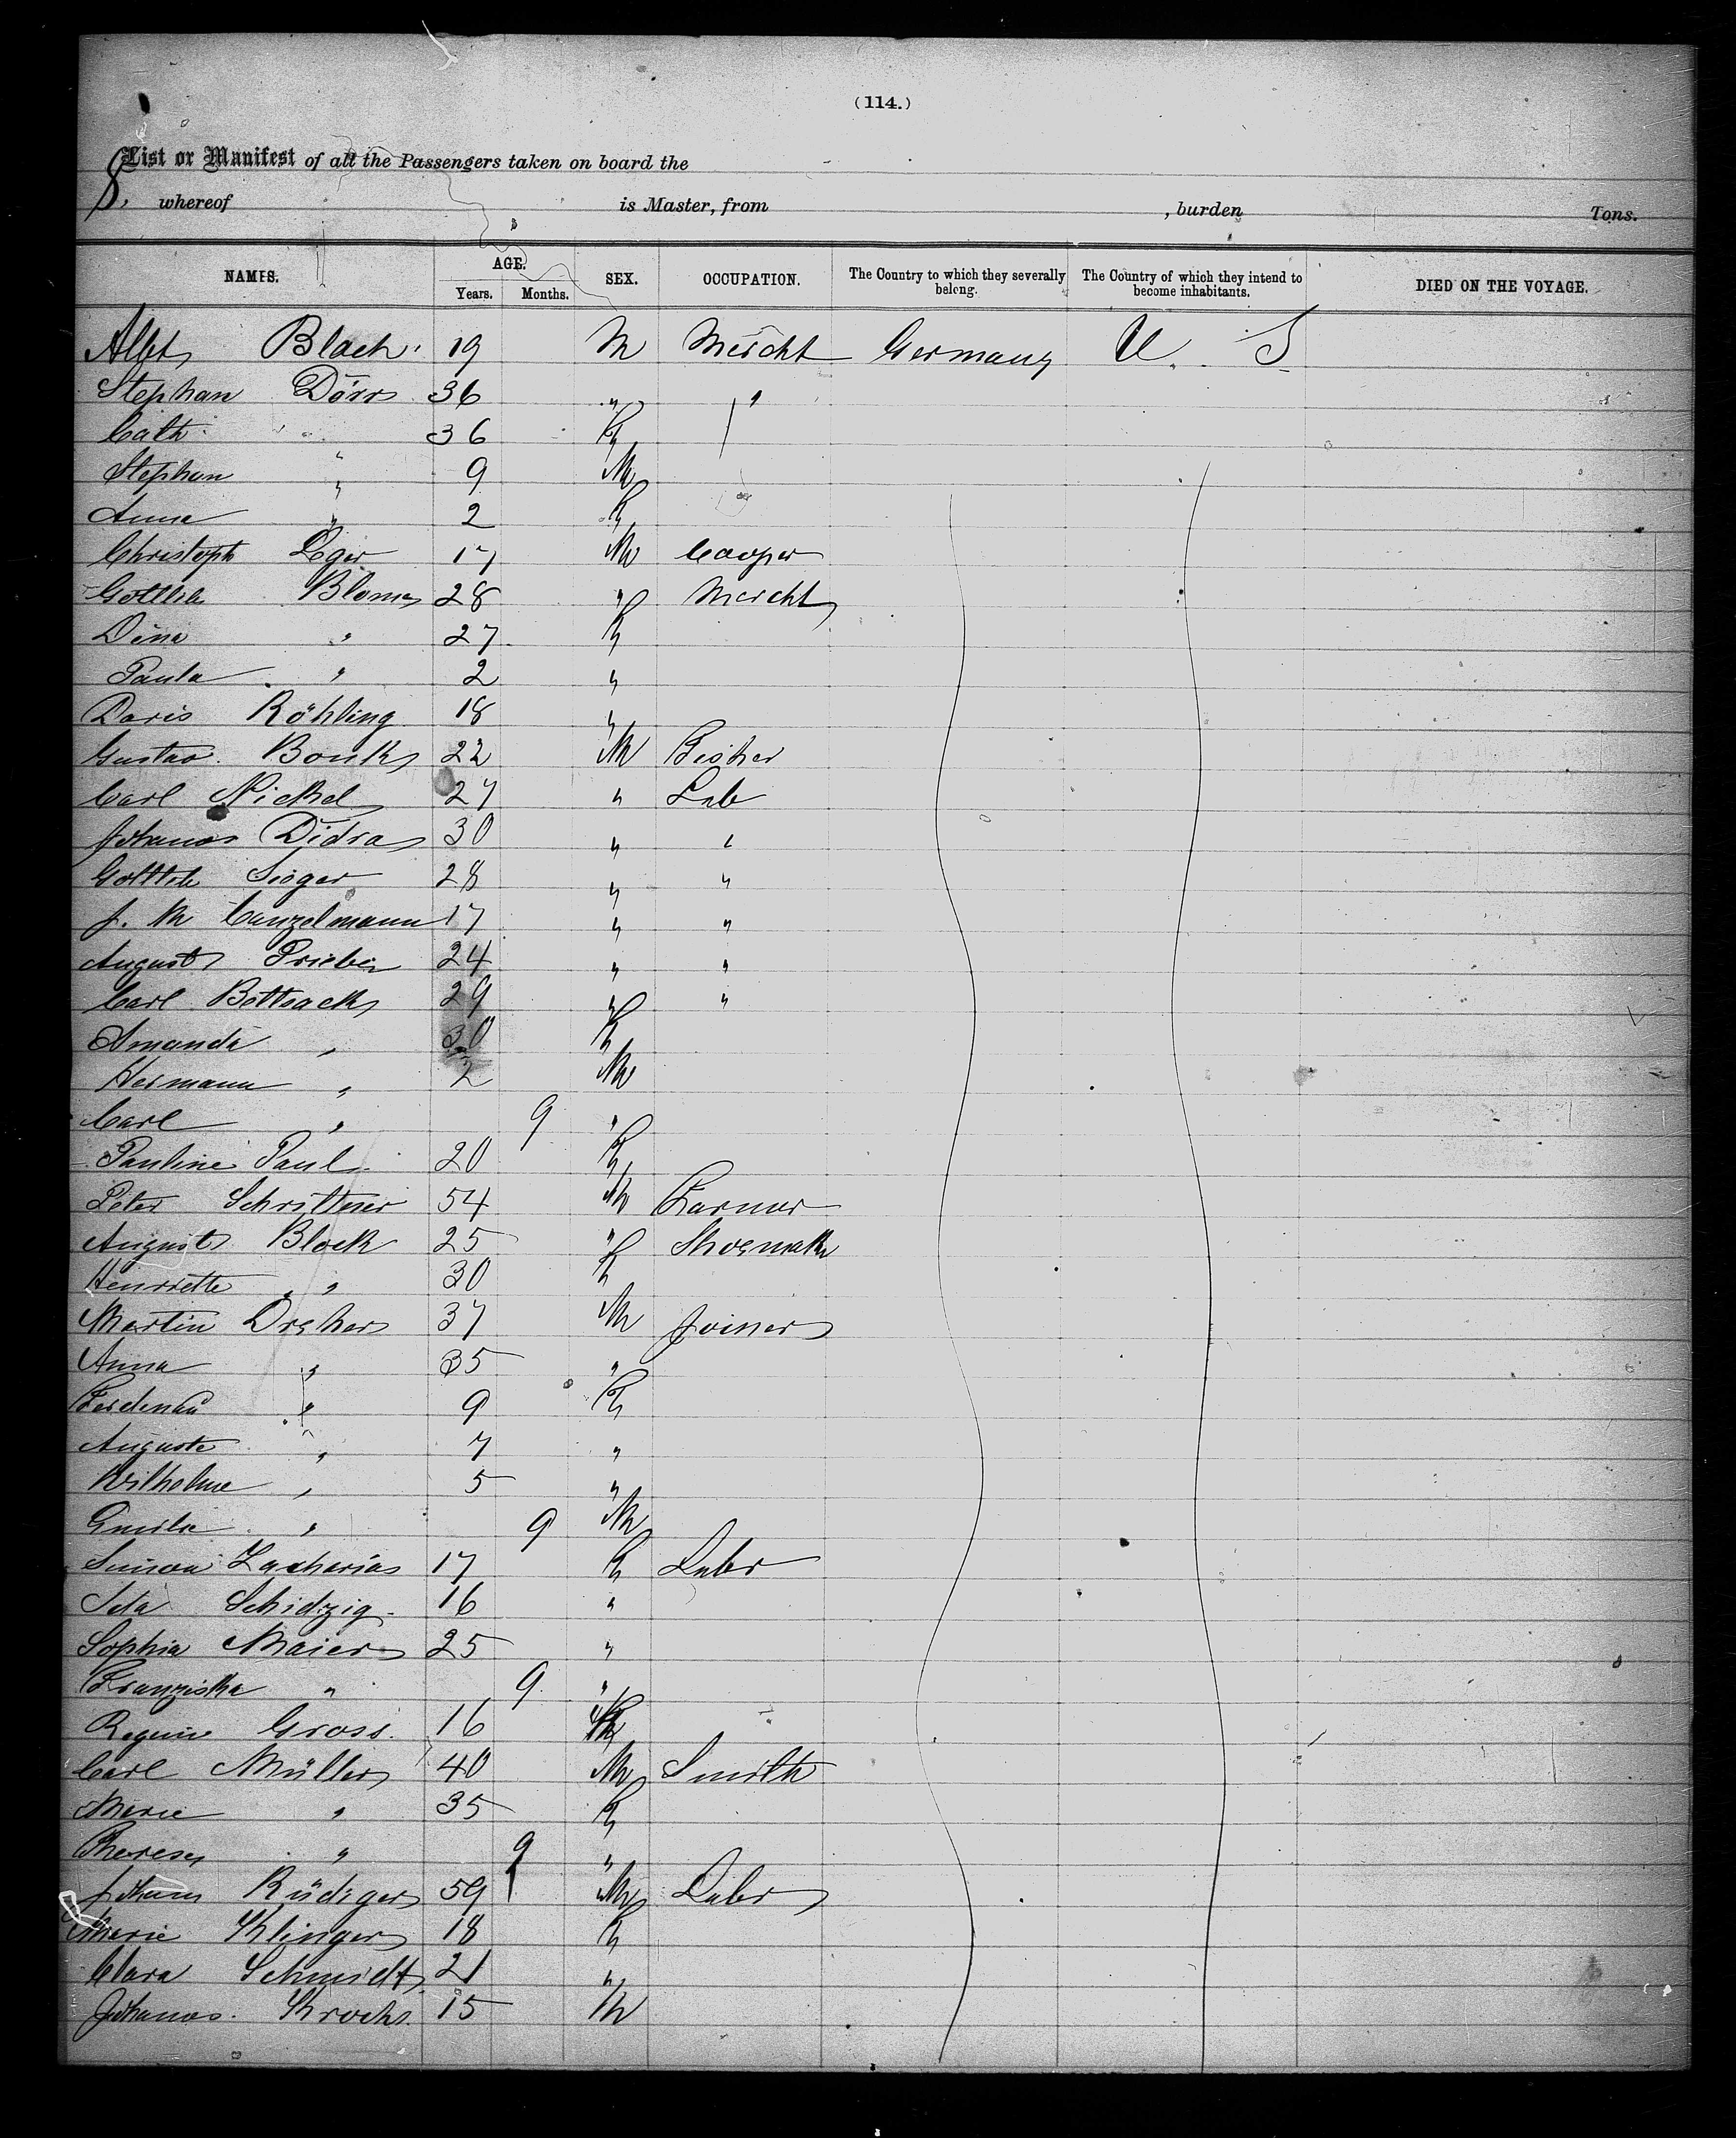 (114.)
List or Manifest of all the Passengers taken on board the
8. whereof is Master, from , burden Tons.
NAMES. AGE. Years. Months. SEX. OCCUPATION. The Country to which they severally belong. The Country of which they intend to become inhabitants. DIED ON THE VOYAGE.
Albt Black 19 M Mercht Germany U. S
Stephan Dörr 36 " "
Cath " 36 F
Stephan " 9 M
Anna " 2 F
Christoph Eger 17 M Cooper
Gottlieb Blome 28 " Mercht
Dina " 27 F
Paula " 2 "
Doris Röhling 18 "
Gustav Bonk 22 M
Carl Nickel 27 " Lab
Johannes Didra 30 " "
Gottlieb Sieger 28 " "
J. M Canzelmann 17 " "
August Prieber 24 " "
Carl Bottsack 29 " "
Amanda " 30 F
Hermann " 2 M
Carl " 9 "
Pauline Paul 20 F
Peter Schrittner 54 M Farmer
August Block 25 " Shoemakr
Henriette " 30 F
Martin Dreher 37 M Joiner
Anna " 35 "
Ferdinand " 9 F
Auguste " 7 "
Wilhelme " 5 "
Emilie " 9 M
Simon Zacharias 17 F Labr
Schidzig 16 "
Sophia Maier 25 "
Franziska " 9 "
Regine Gross 16
Carl Müller 40 M Smith
Marie " 35 F
Therese " 9 "
Johann Rüdiger 59 M Labr
Marie Klinger 18 F
Clara Schmidt 21 "
Johannes Krochs 15 M